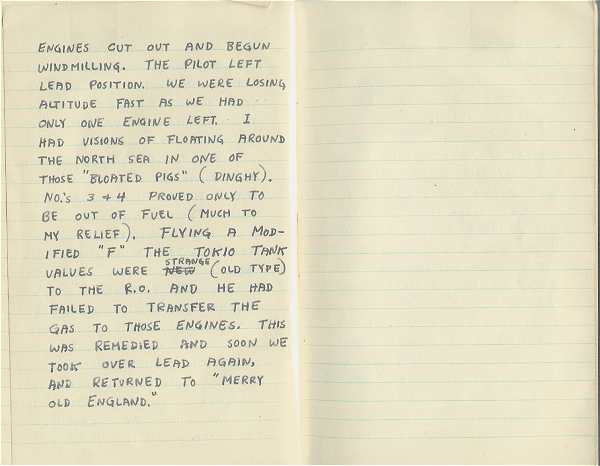 ENGINES CUT OUT AND BEGUN
WINDMILLING. THE PILOT LEFT
LEAD POSITION. WE WERE LOSING
ALTITUDE FAST AS WE HAD
ONLY ONE ENGINE LEFT. I
HAD VISIONS OF FLOATING AROUND
THE NORTH SEA IN ONE OF
THOSE "BLOATED PIGS" (DINGHY).
NO.'s 3 + 4 PROVED ONLY TO
BE OUT OF FUEL (MUCH TO
MY RELIEF). FLYING A MOD-
IFIED "F" THE TOKIO TANK
VALUES WERE NEW STRANGE (OLD TYPE)
TO THE R.O. AND HE HAD
FAILED TO TRANSFER THE
GAS TO THOSE ENGINES. THIS
WAS REMEDIED AND SOON WE
TOOK OVER LEAD AGAIN,
AND RETURNED TO "MERRY
OLD ENGLAND."